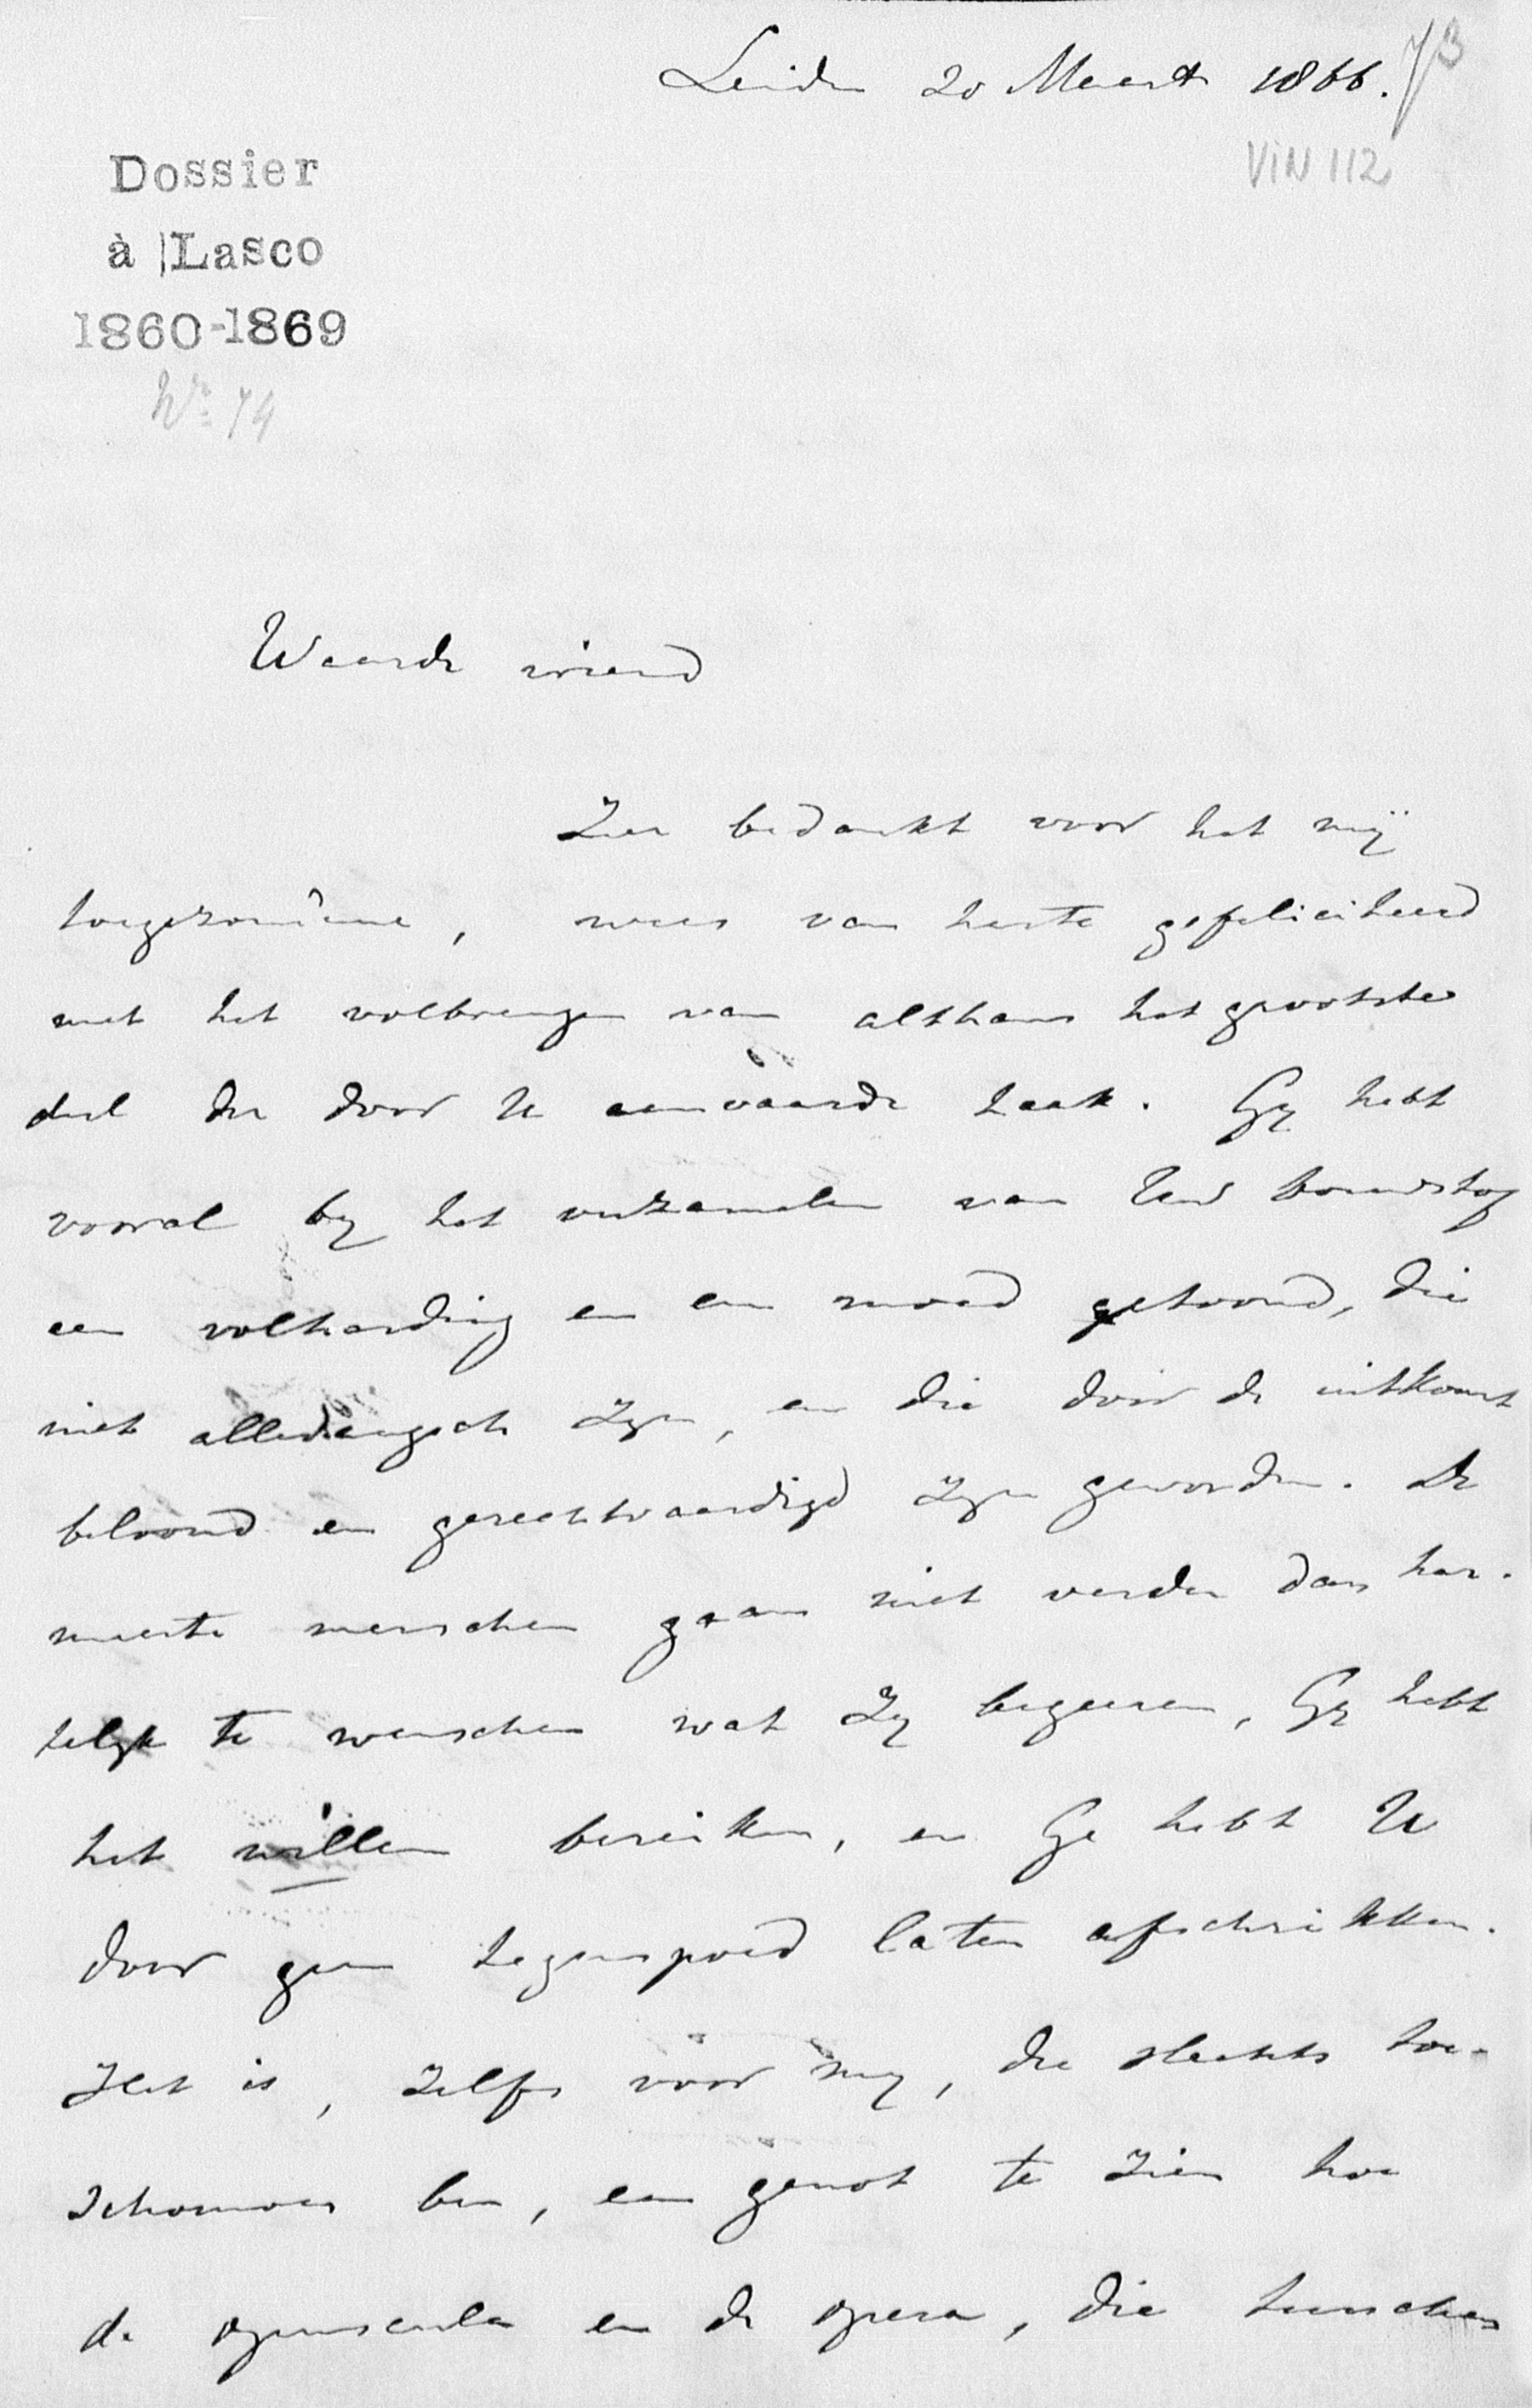 Leiden 20 Maart 1866.
73
VIN 112
Dossier
à Lasco
1860-1869
No 74
Waarde vriend
Zeer bedankt voor het mij
toegezondene, wees van harte gefeliciteerd
met het volbrengen van althans het grootste
deel der door U aanvaarde taak. Gy hebt
vooral by het verzamelen van Uw bouwstof
een volharding en een moed getoond, die
niet alledaagsch zyn, en die door de uitkomst
beloond en gerechtvaardigd zyn geworden. De
meeste menschen gaan niet verder dan har-
telyk te wenschen wat zy begeeren, Gy hebt
het willen bereiken, en Ge hebt U
door geen tegenspoed laten afschrikken.
Het is, zelfs voor my, die slechts toe-
schouwer ben, een genot te zien hoe
de opuscula en de opera, die tusschen